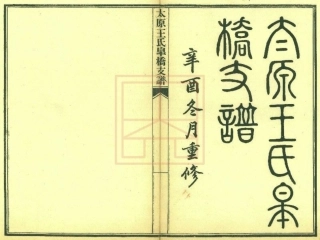 太原王氏皋
橋支譜
辛酉冬月重修
太原王氏皋橋支譜